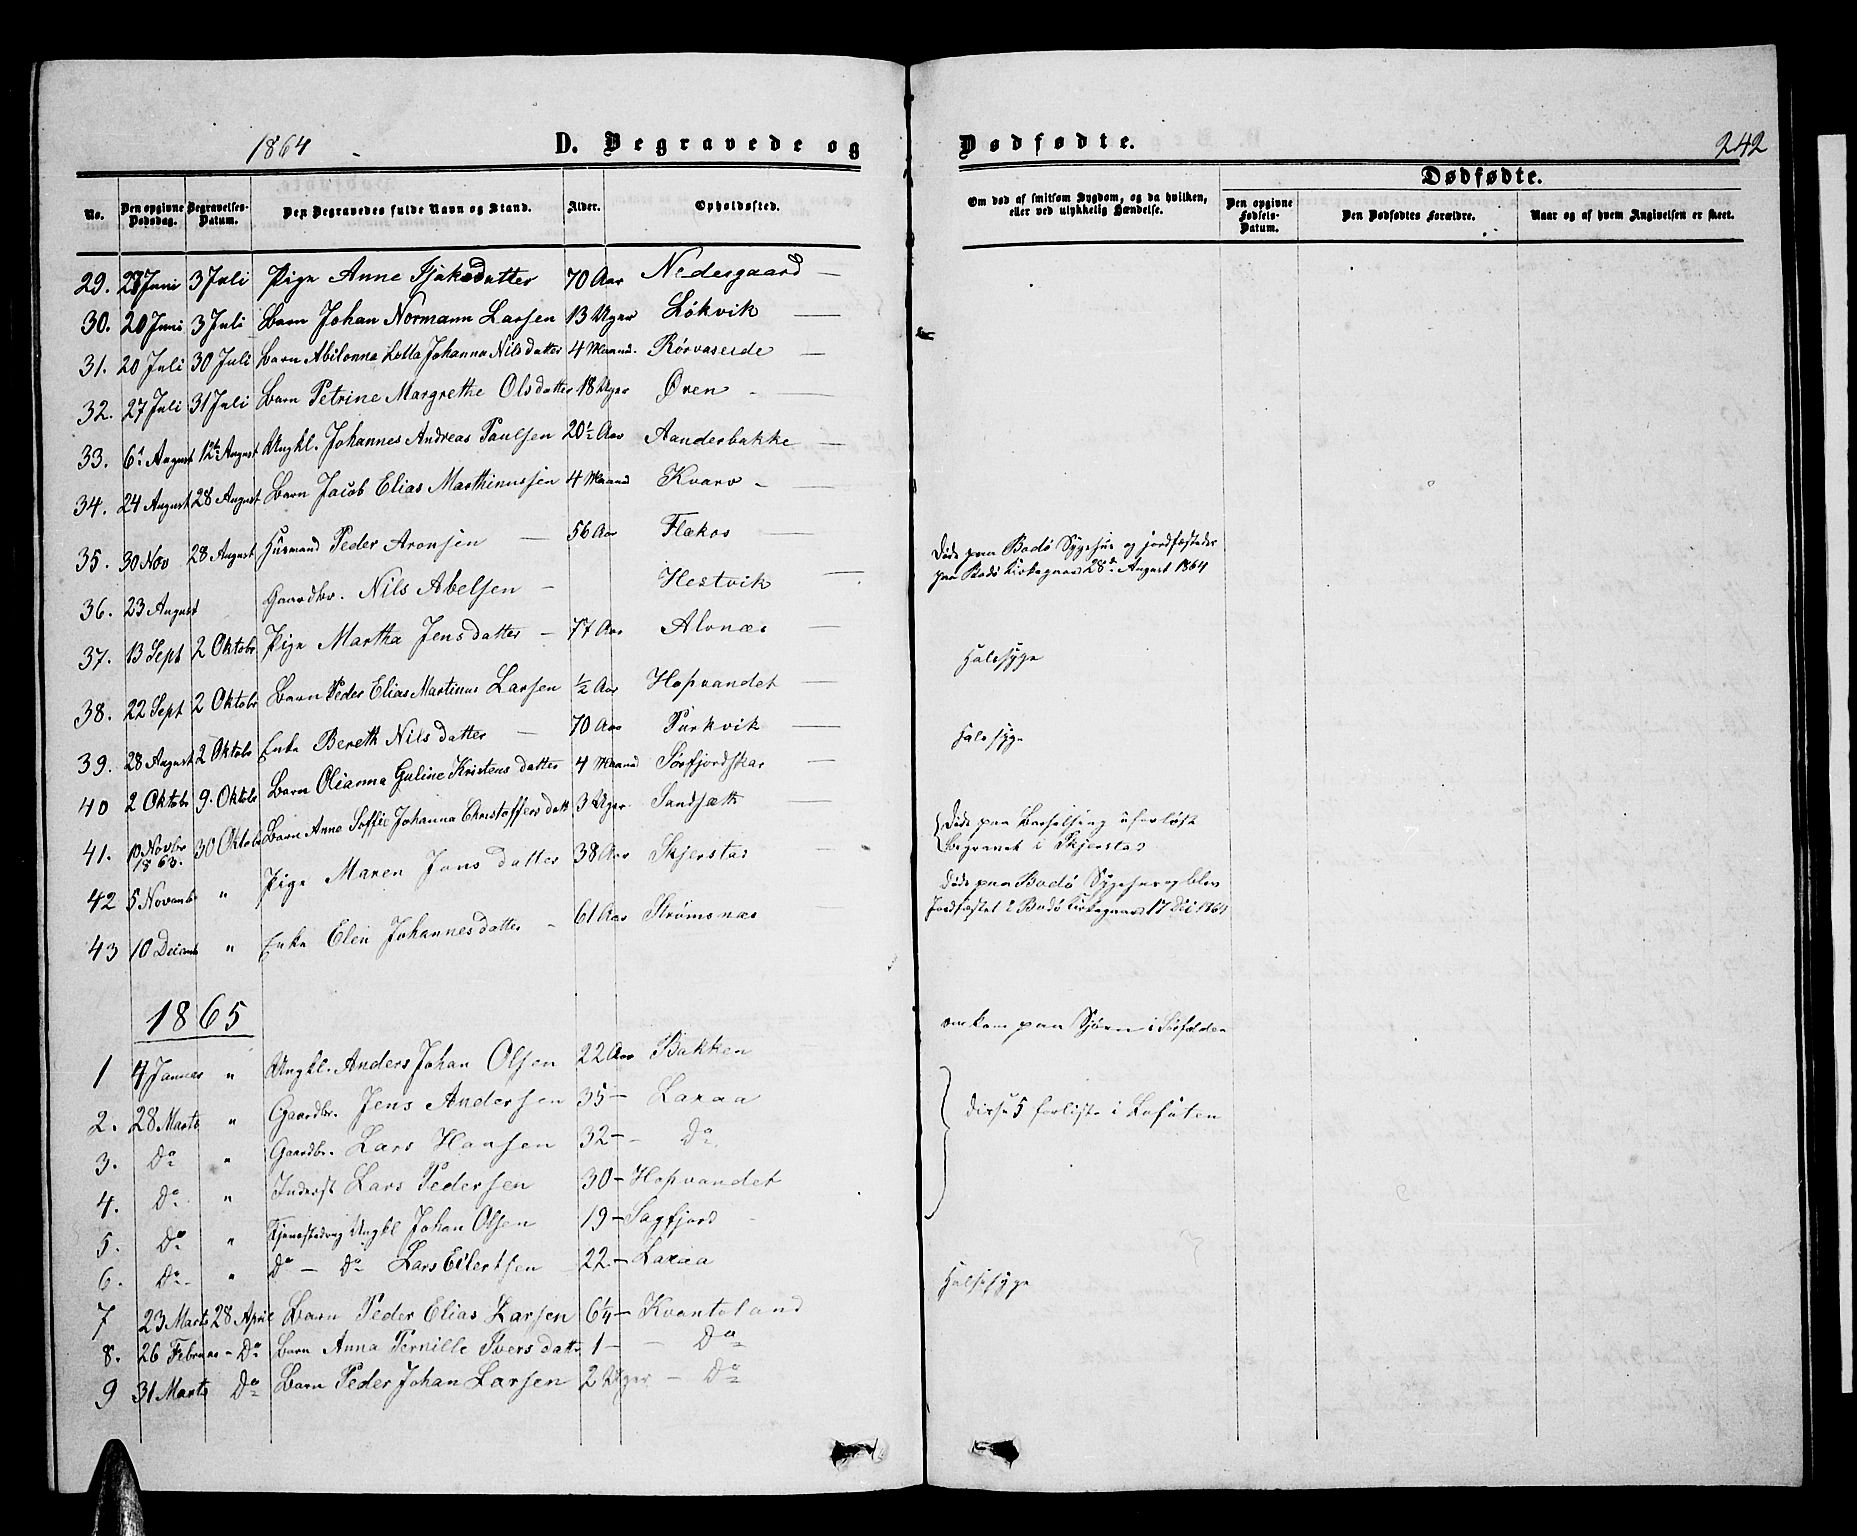 1864
D. Begravede og
Dødfødte.
242
No.
Den opgivne Dødsdag.
Begravelses-Datum.
Den Begravedes fulde Navn og Stand.
Alder.
Opholdssted.
Om død af smitsom Sygdom, og da hvilken, eller ved ulykkelig Hændelse.
Dødfødte.
Den opgivne Fødsels-Datum.
Den Dødfødtes Forældre.
Naar og af hvem Angivelsen er skeet.
29. 23 Juni 3 Juli Pige Anne Isaksdatter 70 Aar Nedregaard —
30. 20 Juni 3 Juli Barn Johan Normann Larsen 13 Uger Løkvik —
31. 20 Juli 30 Juli Barn Abilonna Lotta Johanna Nilsdatter 4 Maand. Rørvaseide —
32. 27 Juli 31 Juli Barn Petrine Margrethe Olsdatter 18 Uger Øren —
33. 6t August 12te August Ungkl. Johannes Andreas Paulsen 20½ Aar Aanderbakke —
34. 24 August 28 August Barn Jacob Elias Marthinussen 4 Maand Kvarv —
35. 30 Nov 28 August Husmand Peder Aronsen — 56 Aar Flækos —
36. 23 August Gaardbr. Nils Abelsen — Hestvik — Døde paa Bodø Sygehus og jordfæstedes
paa Bodø Kirkegaard 28de August 1864
37. 13 Sept 2 Oktobr Pige Martha Jensdatter — 77 Aar Alvnæs —
38. 22 Sept 2 Oktobr Barn Peder Elias Martinus Larsen ½ Aar Hopvandet — Halssyge
39. 28 August 2 Oktobr Enke Bereth Nilsdatter — 70 Aar Purkvik —
40 2 Oktobr 9. Oktobr Barn Olianna Guline Kristensdatter 4 Maand Tørfjordskar — Halssyge
41. 10 Novbr 1863. 30 Oktobr Barn Anne Soffie Johanna Christoffersdatt 3 Uger Sandsæth —
42 5 Novembr " Pige Maren Jonsdatter 38 Aar Skjerstad Døde paa Barselseng uforløst
Begravet i Skjerstad
43 10 Decemb " Enke Elen Johannesdatter — 61 Aar Strømsnæs Døde paa Bodø Sygehus og blev
Jordfæstet i Bodø Kirkegaard 17 Dec 1864
1865
1 4 Januar " Ungkl. Anders Johan Olsen 22 Aar Bakken omkom paa Sjøen i Sørfolden
2. 28 Marts " Gaardbr. Jens Andersen 35 — Laxaa
3. Do " Gaardbr. Lars Hansen 32 — Do
4. Do " Inderst Lars Pedersen 30 — Hopvandet
Disse 5 forliste i Lofoten
5. Do " Tjenestedreng Ungkl Johan Olsen 19 — Sagfjord
6. Do " Do — Do Lars Eilertsen 22 — Laxaa
7 23 Marts 28 April Barn Peder Elias Larsen 6¼ — Kvantoland Halssyge
8. 26 Februar — Do Barn Anna Pernille Iversdattr 1 — Do
9 31 Marts Do Barn Peder Johan Larsen 2 Uger — Do